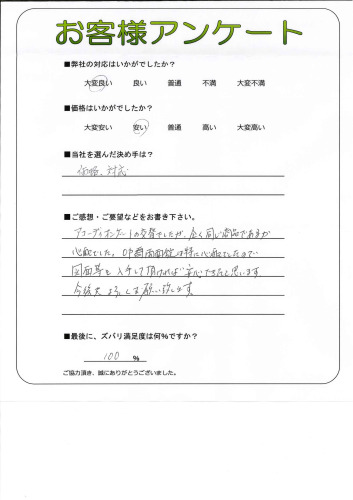 お客様アンケート
■弊社の対応はいかがでしたか？
大変良い 良い 普通 不満 大変不満
■価格はいかがでしたか？
大変安い 安い 普通 高い 大変高い
■当社を選んだ決め手は？
価格、対応
■ご感想・ご要望などをお書き下さい。
アコーディオンゲートの交替でしたが、全く同じ商品であるか
心配でした。 両面錠は特に心配でしたので
図面等を入手して頂ければ安心できたと思います
今後共よろしくお願い致します。
■最後に、ズバリ満足度は何％ですか？
100 ％
ご協力頂き、誠にありがとうございました。